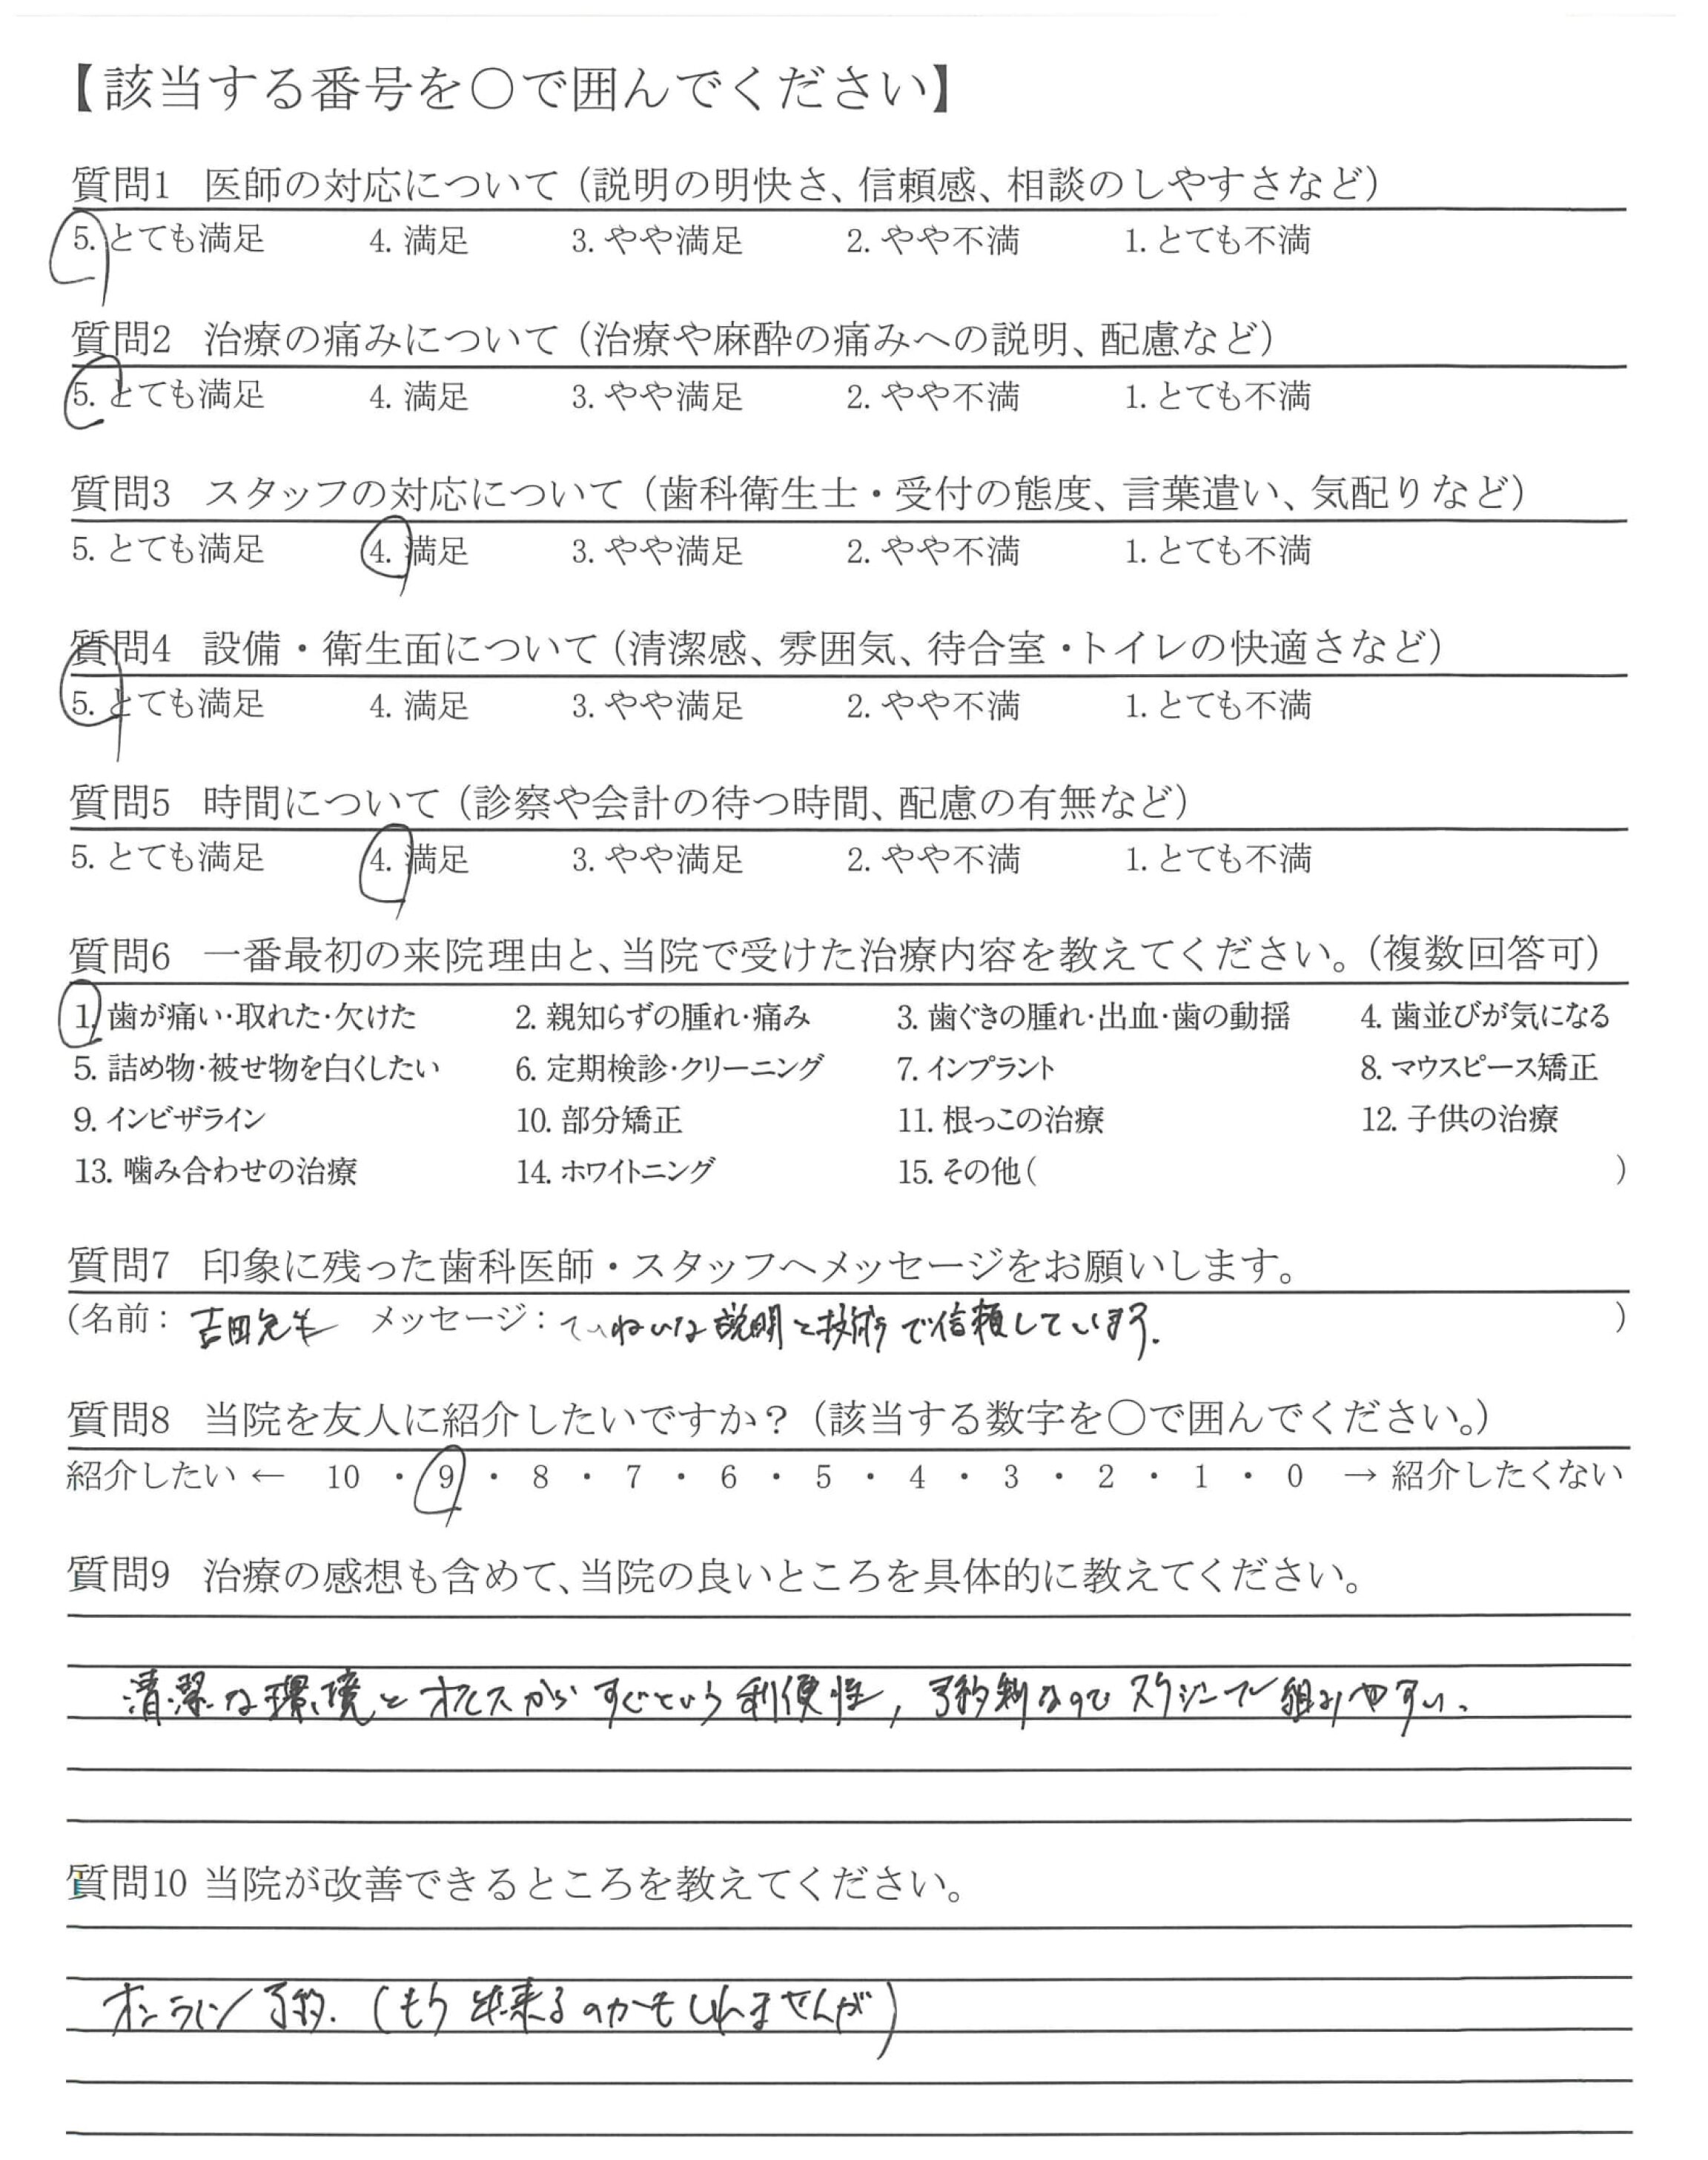 【該当する番号を○で囲んでください】
質問1 医師の対応について（説明の明快さ、信頼感、相談のしやすさなど）
5. とても満足 4. 満足 3. やや満足 2. やや不満 1. とても不満
質問2 治療の痛みについて（治療や麻酔の痛みへの説明、配慮など）
5. とても満足 4. 満足 3. やや満足 2. やや不満 1. とても不満
質問3 スタッフの対応について（歯科衛生士・受付の態度、言葉遣い、気配りなど）
5. とても満足 4. 満足 3. やや満足 2. やや不満 1. とても不満
質問4 設備・衛生面について（清潔感、雰囲気、待合室・トイレの快適さなど）
5. とても満足 4. 満足 3. やや満足 2. やや不満 1. とても不満
質問5 時間について（診察や会計の待つ時間、配慮の有無など）
5. とても満足 4. 満足 3. やや満足 2. やや不満 1. とても不満
質問6 一番最初の来院理由と、当院で受けた治療内容を教えてください。（複数回答可）
1. 歯が痛い・取れた・欠けた 2. 親知らずの腫れ・痛み 3. 歯ぐきの腫れ・出血・歯の動揺 4. 歯並びが気になる
5. 詰め物・被せ物を白くしたい 6. 定期検診・クリーニング 7. インプラント 8. マウスピース矯正
9. インビザライン 10. 部分矯正 11. 根っこの治療 12. 子供の治療
13. 噛み合わせの治療 14. ホワイトニング 15. その他（ ）
質問7 印象に残った歯科医師・スタッフへメッセージをお願いします。
（名前： 吉田先生 メッセージ：ていねいな説明と技術で信頼しています。 ）
質問8 当院を友人に紹介したいですか？（該当する数字を○で囲んでください。）
紹介したい ← 10 ・ 9 ・ 8 ・ 7 ・ 6 ・ 5 ・ 4 ・ 3 ・ 2 ・ 1 ・ 0 → 紹介したくない
質問9 治療の感想も含めて、当院の良いところを具体的に教えてください。
清潔な環境とオフィスからすぐという利便性, 予約制なのでスケジュール組みやすい。
質問10 当院が改善できるところを教えてください。
オンライン予約.（もう出来るのかもしれませんが）